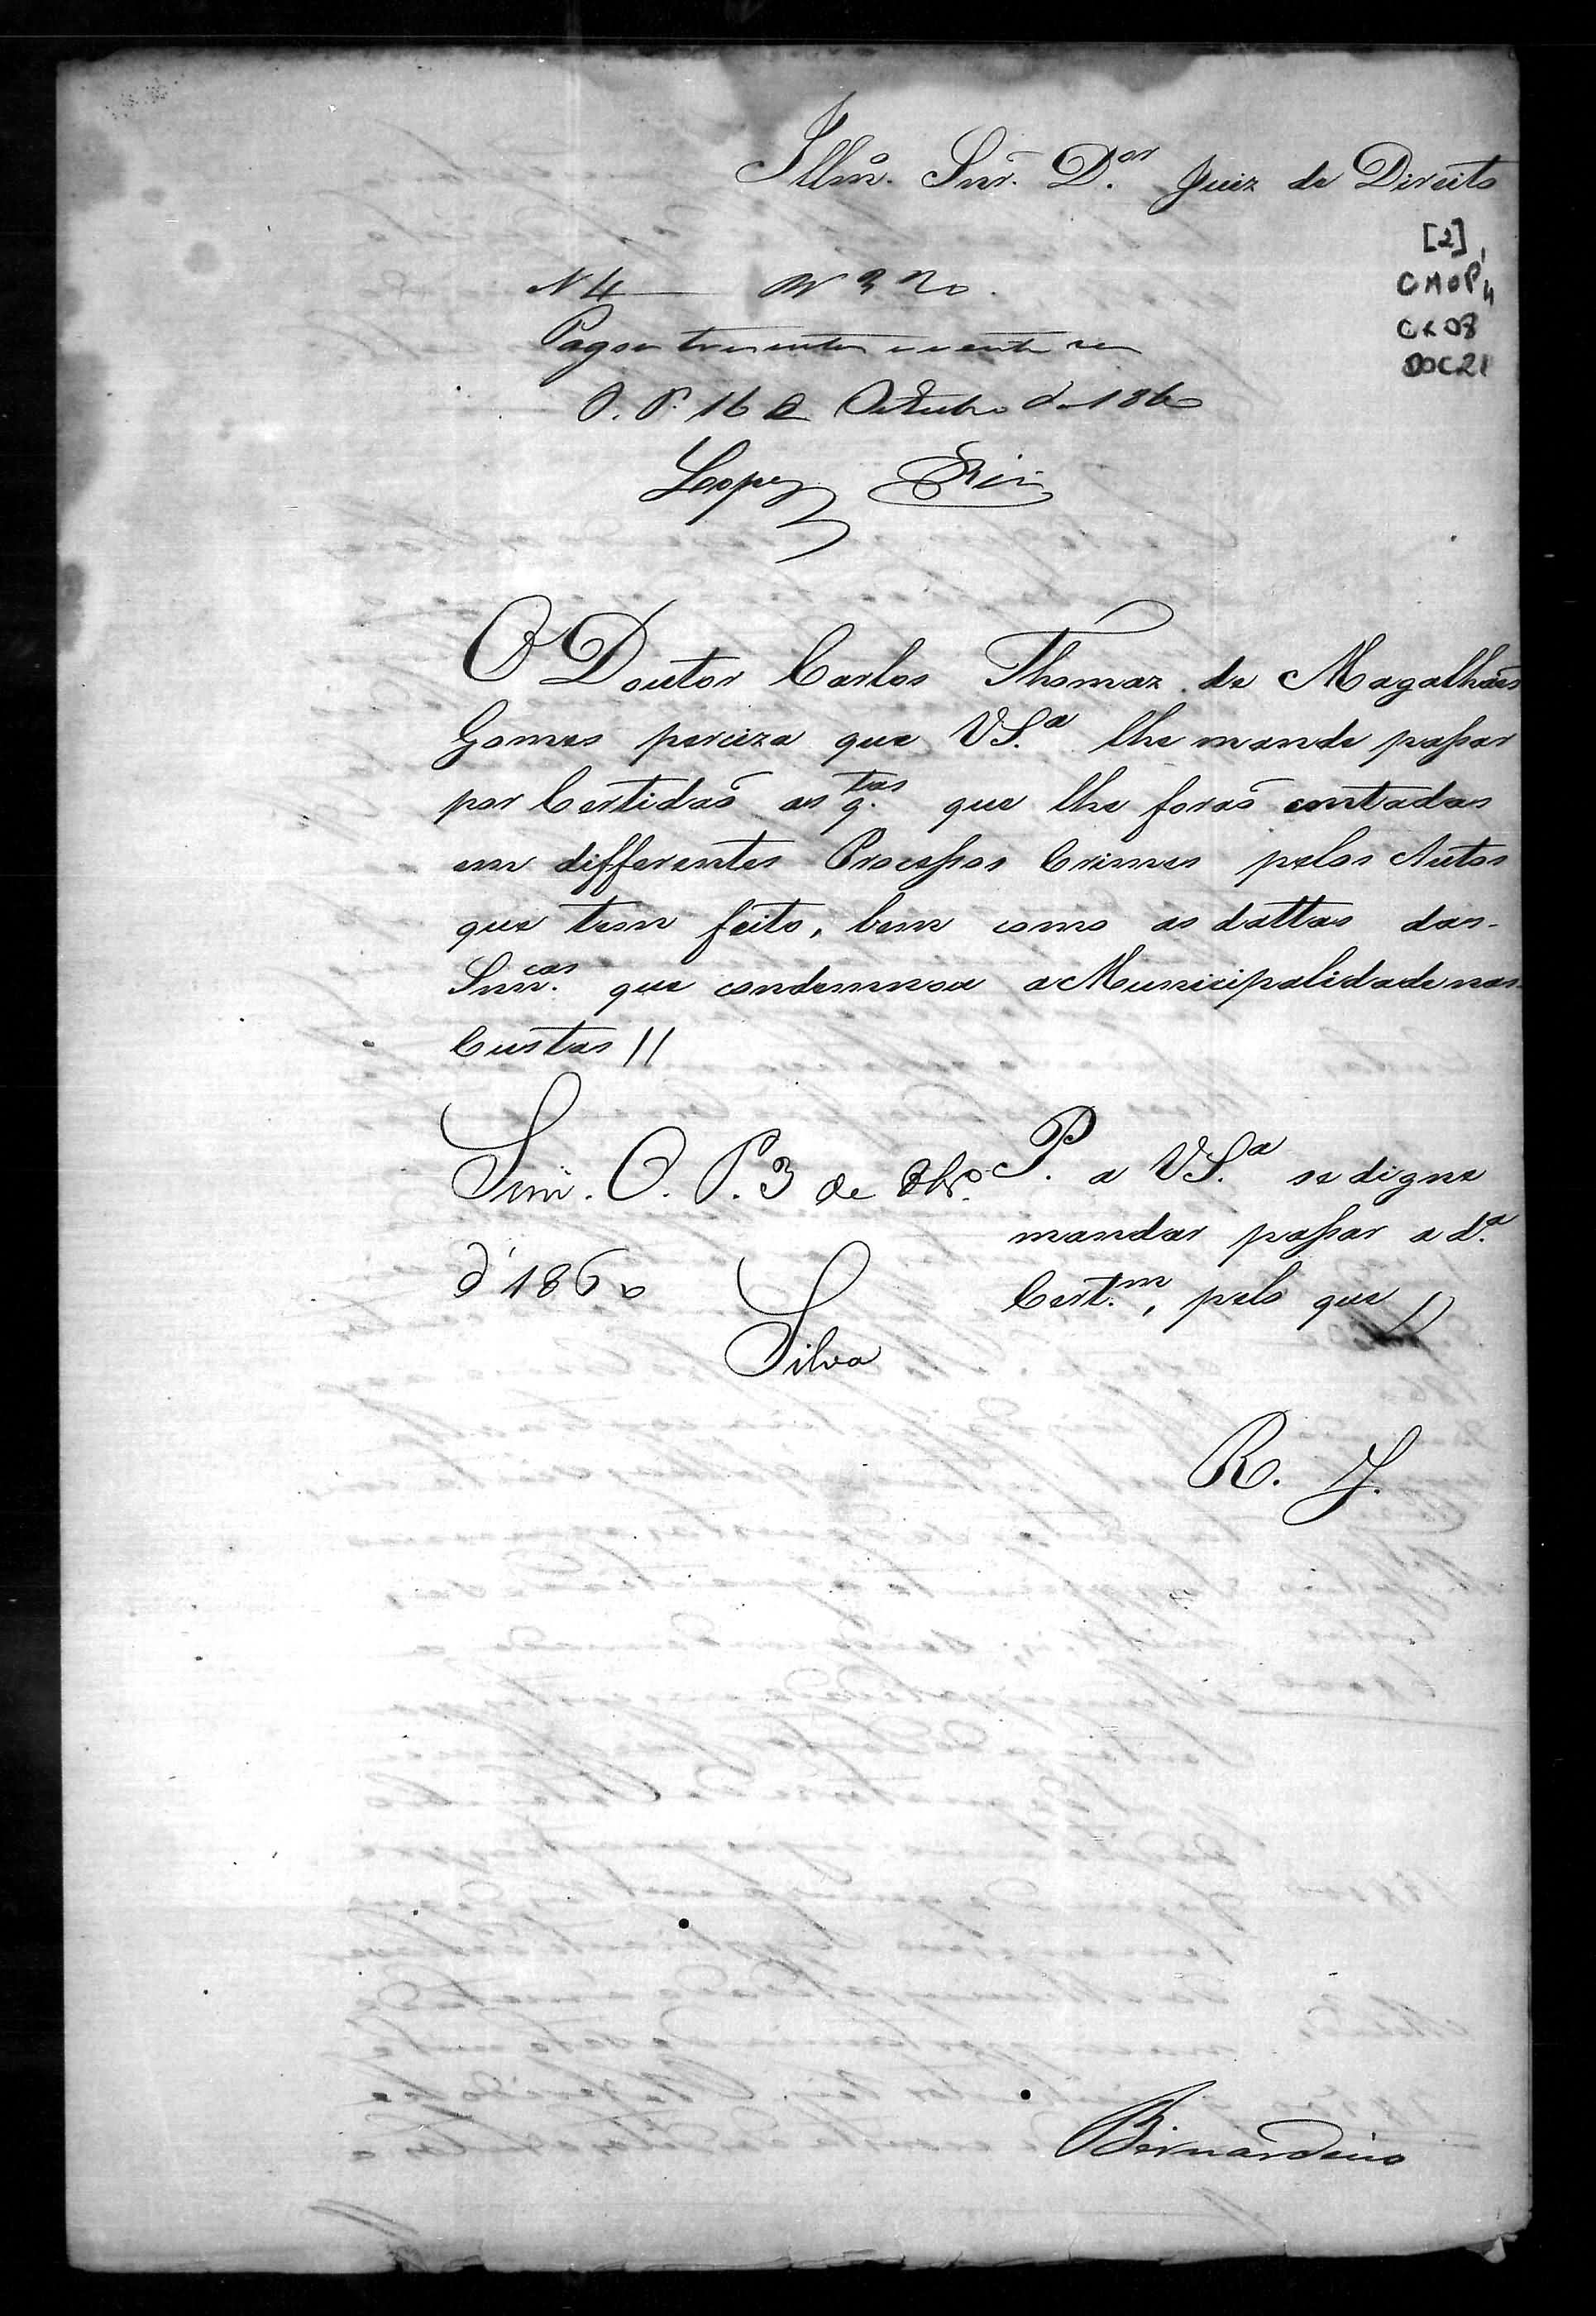 Illmo. Snr. D.or Juiz de Direito
[2]
CMOP
CX 08
DOC 21
N 4 320
Pagou trezentos e vente reis
O. P. 16 de Outubro de 1860
Lopes
O Doutor Carlos Thomaz de Magalhães
Gomes perciza que VS.a lhe mande passar
por Certidaõ as q.tas que lhe foraõ contadas
em differentes Processos Crimes pelos Autos
que tem feito, bem como as dattas das
Snn.cas que condemnou a Municipalidade nas
Custas //
Sim. O. P. 3 de 8br.o
d'1860
Silva
P. a VS.a se digne
mandar passar a d.a
Cert.m, pelo que //
R. J.
Bernardino